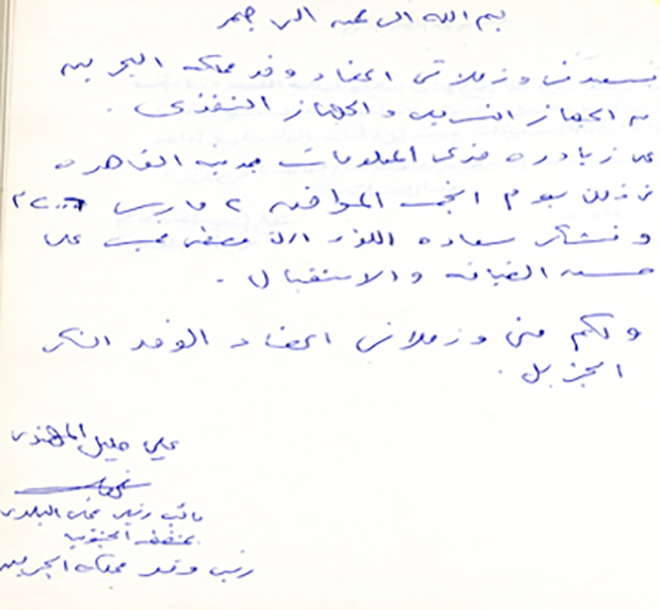 بسم الله الرحمن الرحيم
يسعدني وزملائي أعضاء وفد مملكة البحرين
من الجهاز التشريعي والجهاز التنفيذي .
على زيارة مركز المعلومات بمدينة القاهرة
وذلك يوم الموافق ٢ مارس ٢٠٠٦م
ونشكر سعادة اللواء على
حسن الضيافة والاستقبال .
ولكم مني وزملائي أعضاء الوفد الشكر
الجزيل .
علي المهندي
نائب رئيس مجلس البلدي
بمنطقة الجنوبية
رئيس وفد مملكة البحرين